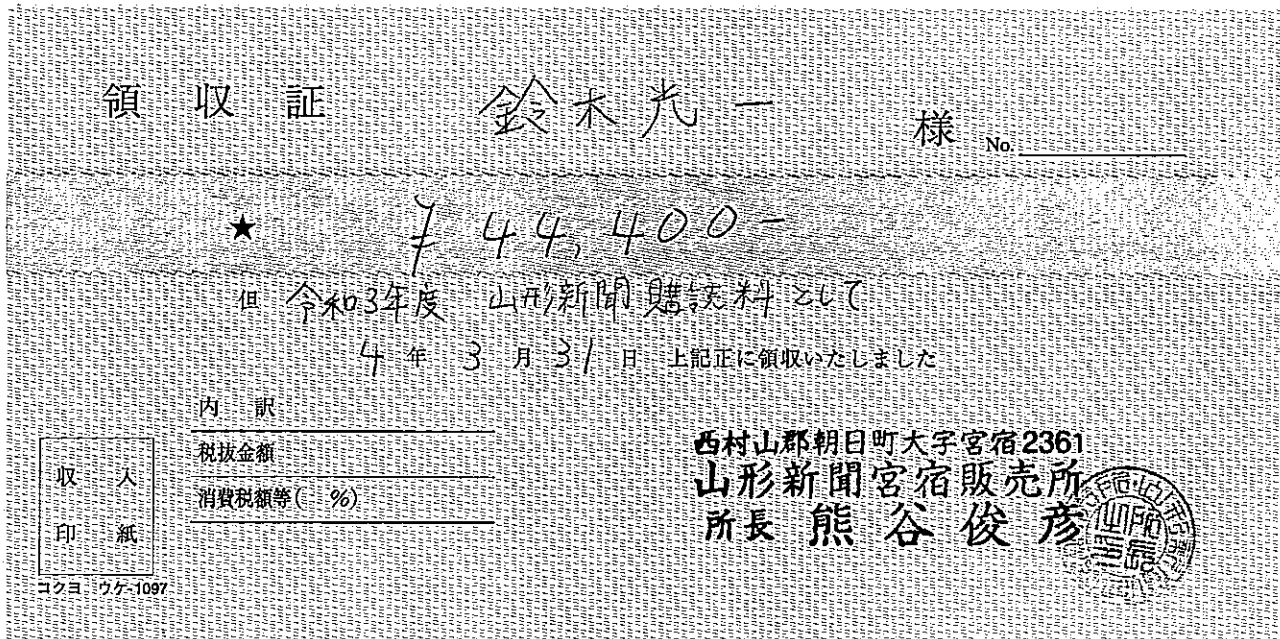 領収証 鈴木光一 様 No.
★ ¥44,400-
但 令和3年度 山形新聞購読料として
4年3月31日 上記正に領収いたしました
内訳
税抜金額
消費税額等( %)
収入
印紙
コクヨ ウケ-1097
西村山郡朝日町大字宮宿2361
山形新聞宮宿販売所
所長 熊谷俊彦